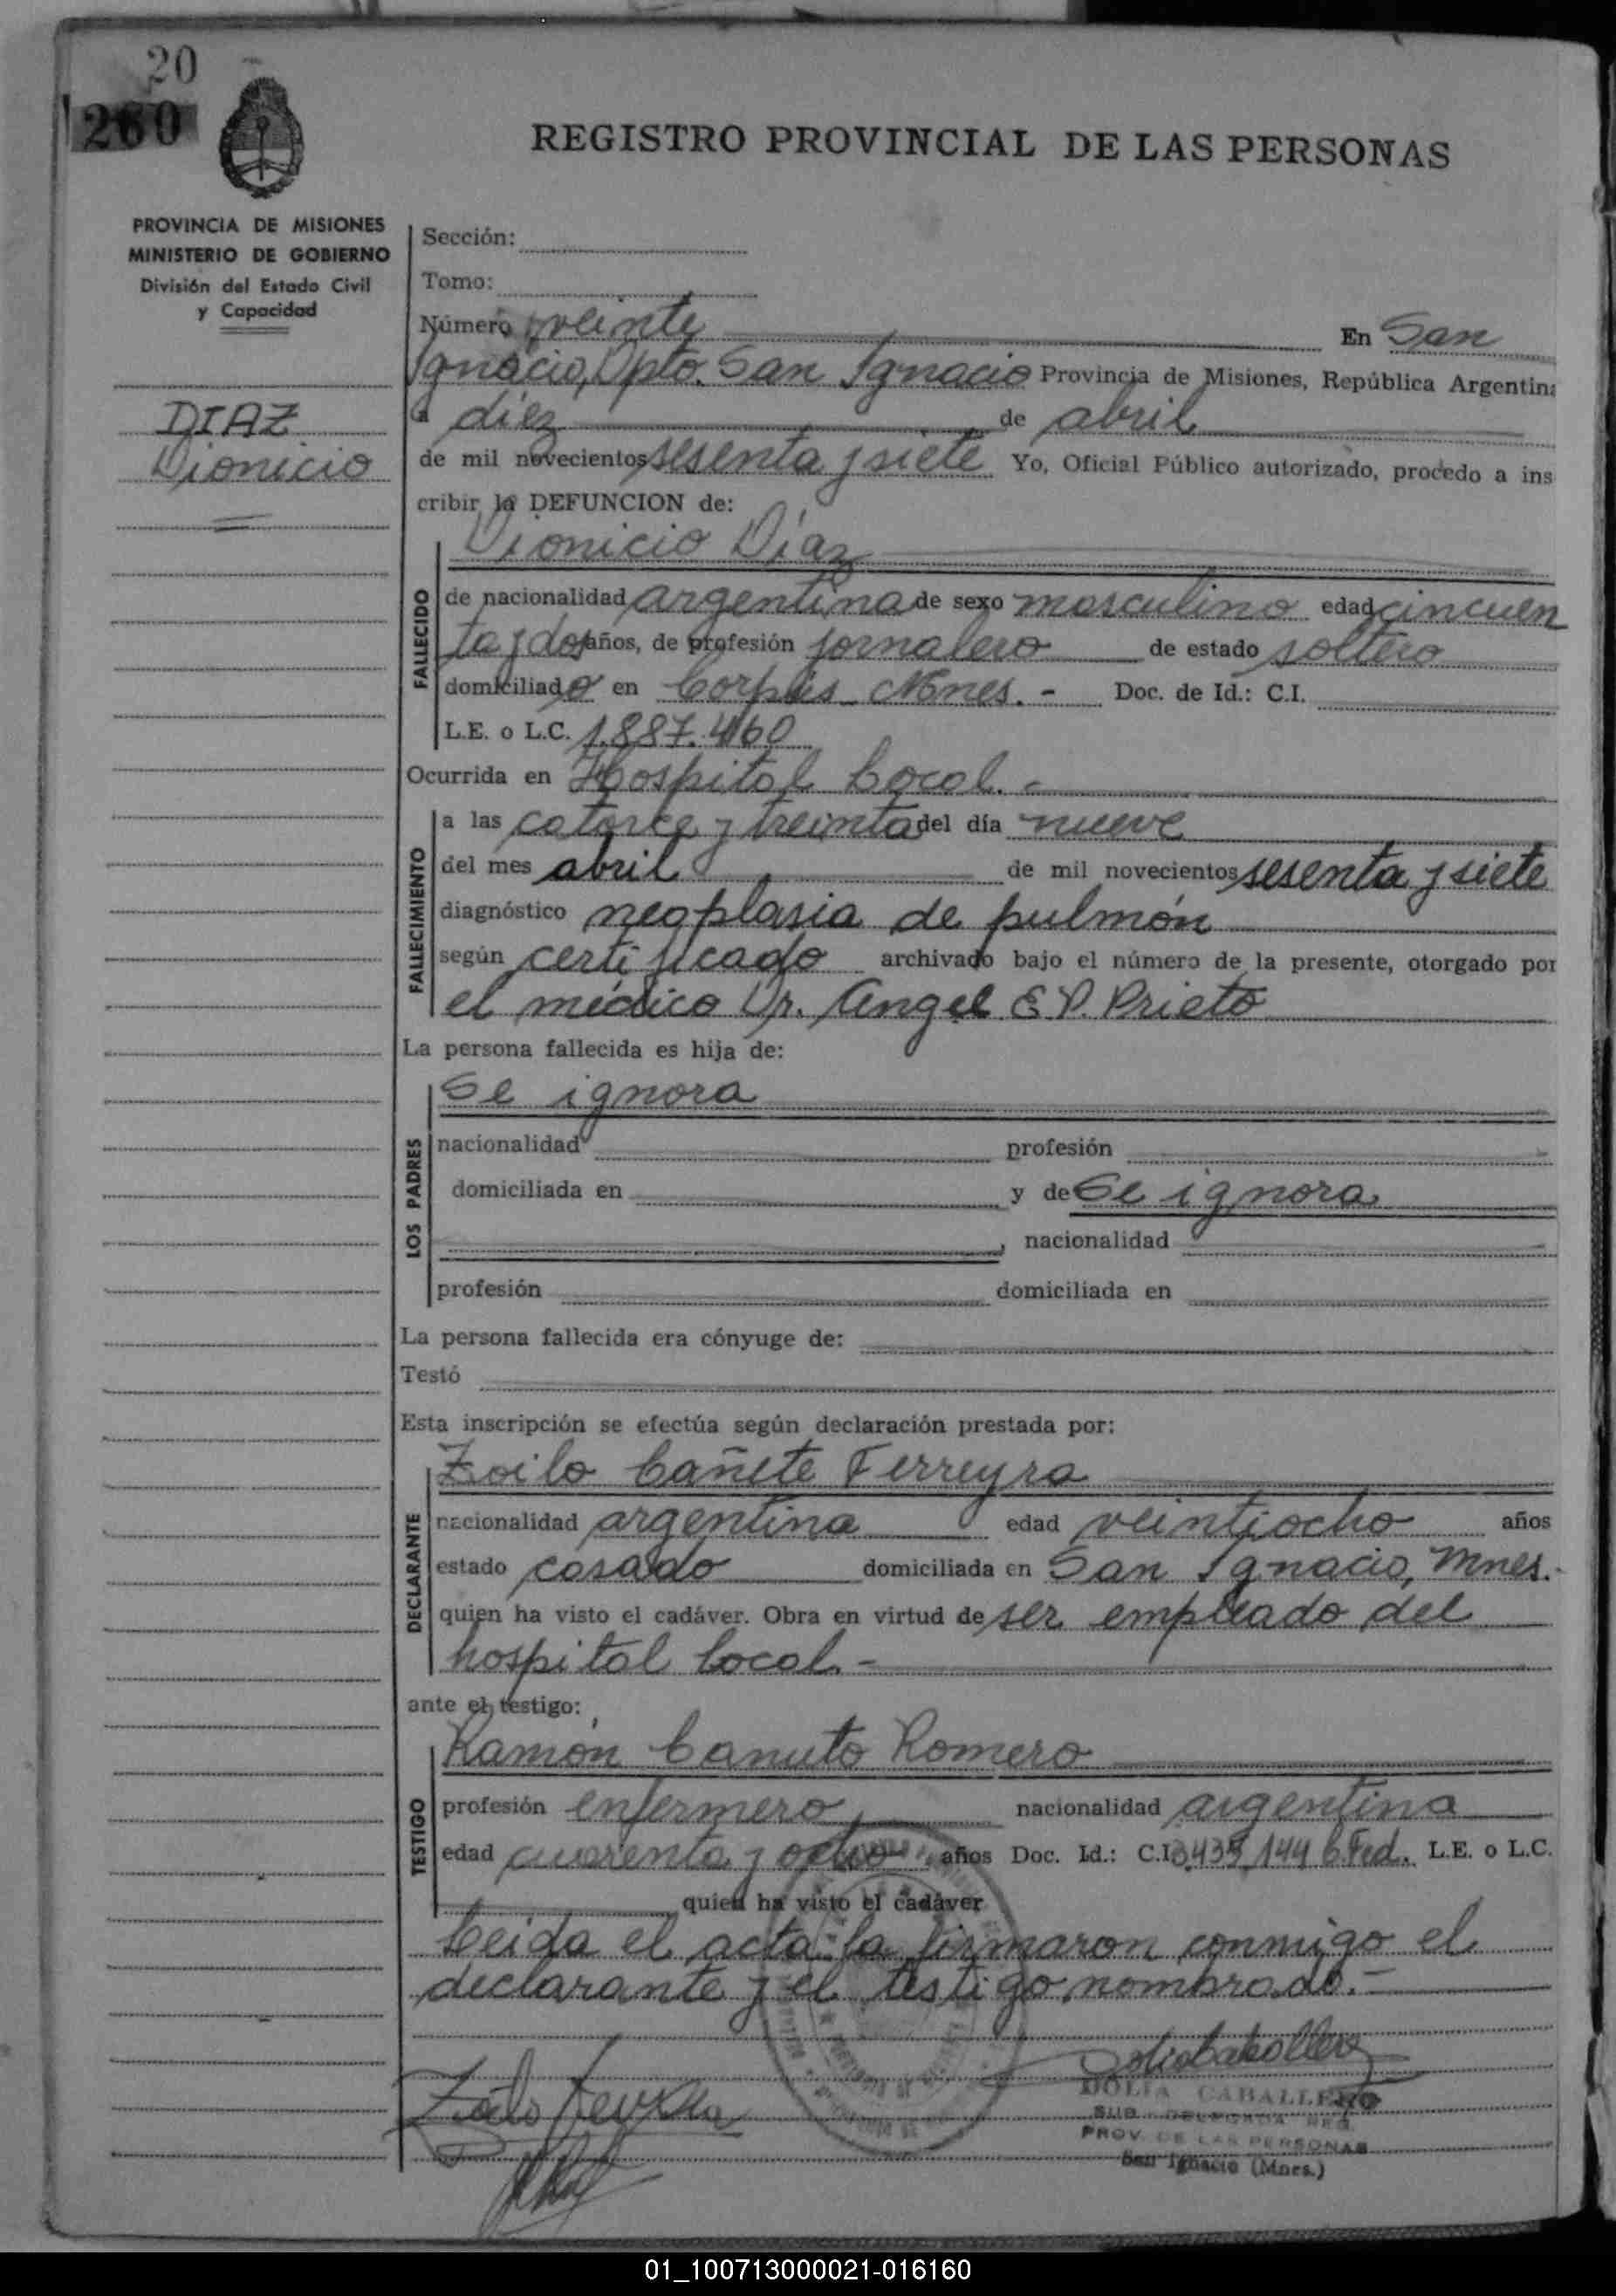 20
260
REGISTRO PROVINCIAL DE LAS PERSONAS
PROVINCIA DE MISIONES
MINISTERIO DE GOBIERNO
División del Estado Civil
y Capacidad
DIAZ
Dionicio
Sección:
Tomo:
Número veinte En San
Ignacio, Dpto. San Ignacio Provincia de Misiones, República Argentina
a diez de abril
de mil novecientos sesenta y siete Yo, Oficial Público autorizado, procedo a ins
cribir la DEFUNCION de:
Dionicio Díaz
FALLECIDO
de nacionalidad argentina de sexo masculino edad cincuen
ta y dos años, de profesión jornalero de estado soltero
domiciliado en Corpus Mnes. - Doc. de Id.: C.I.
L.E. o L.C. 1.887.460
Ocurrida en Hospital Local. -
FALLECIMIENTO
a las catorce y treinta del día nueve
del mes abril de mil novecientos sesenta y siete
diagnóstico neoplasia de pulmón
según certificado archivado bajo el número de la presente, otorgado por
el médico Dr. Angel E.P. Prieto
La persona fallecida es hija de:
LOS PADRES
Se ignora
nacionalidad profesión
domiciliada en y de Se ignora
, nacionalidad
profesión domiciliada en
La persona fallecida era cónyuge de:
Testó
Esta inscripción se efectúa según declaración prestada por:
DECLARANTE
Zoilo Cañete Ferreyra
nacionalidad argentina edad veintiocho años
estado casado domiciliada en San Ignacio, Mnes.-
quien ha visto el cadáver. Obra en virtud de ser empleado del
hospital local. -
ante el testigo:
TESTIGO
Ramón Canuto Romero
profesión enfermero nacionalidad argentina
edad cuarenta y ocho años Doc. Id.: C.I. 3.435.144 C. Fed. L.E. o L.C.
quien ha visto el cadáver
Leida el acta: la firmaron conmigo el
declarante y el testigo nombrado. -
DOLIA CABALLERO
SUB - DELEGADA REG.
PROV. DE LAS PERSONAS
San Ignacio (Mnes.)
01_100713000021-016160